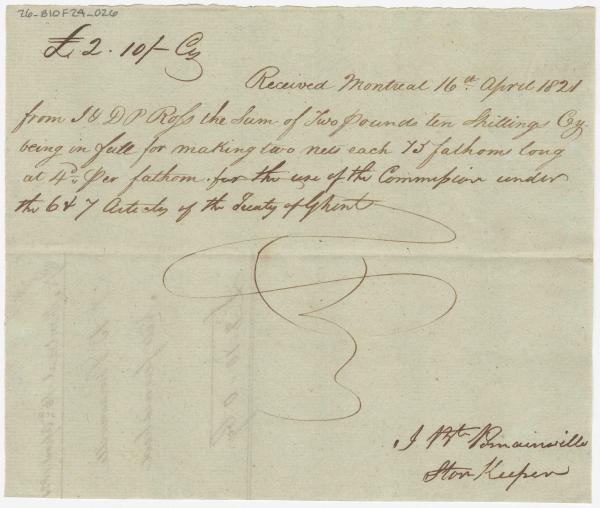 26-B10F2A-026
£2.10/- Cy
Received Montreal 16th April 1821
from J & D P Ross the Sum of Two Pounds ten Shillings Cy.
being in full for making two nets each 75 fathoms long
at 4d Per fathom for the use of the Commission under
the 6 & 7 Articles of the Treaty of Ghent
J Bte Romainville
Stor Keeper